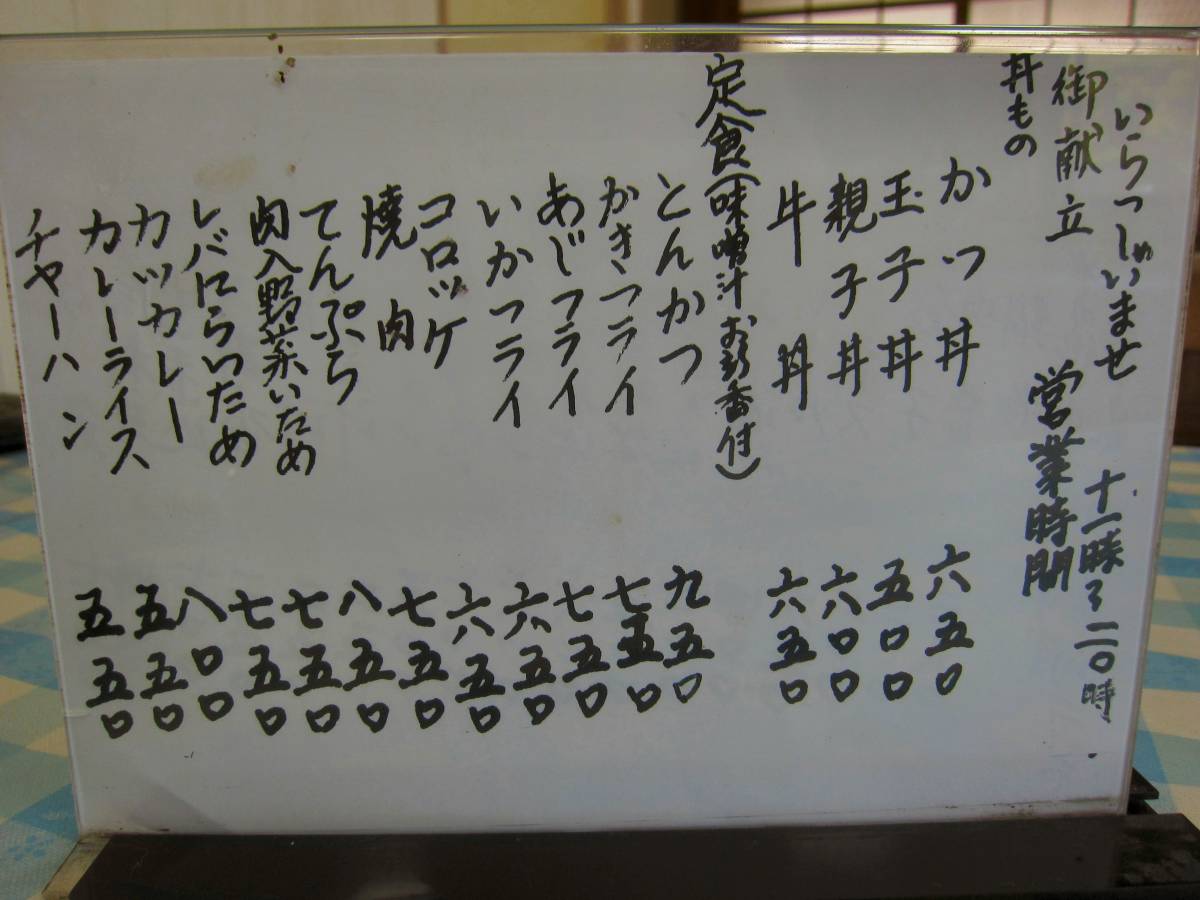 いらっしゃいませ
御献立
営業時間 十一時 二〇時
丼もの
かつ丼 六五〇
玉子丼 五〇〇
親子丼 六〇〇
牛丼 六五〇
定食(味噌汁お新香付)
とんかつ 九五〇
かきフライ 七五〇
あじフライ 七五〇
いかフライ 六五〇
コロッケ 六五〇
焼肉 七五〇
てんぷら 八五〇
肉入野菜いため 七五〇
レバにらいため 七五〇
カツカレー 八〇〇
カレーライス 五五〇
チャーハン 五五〇